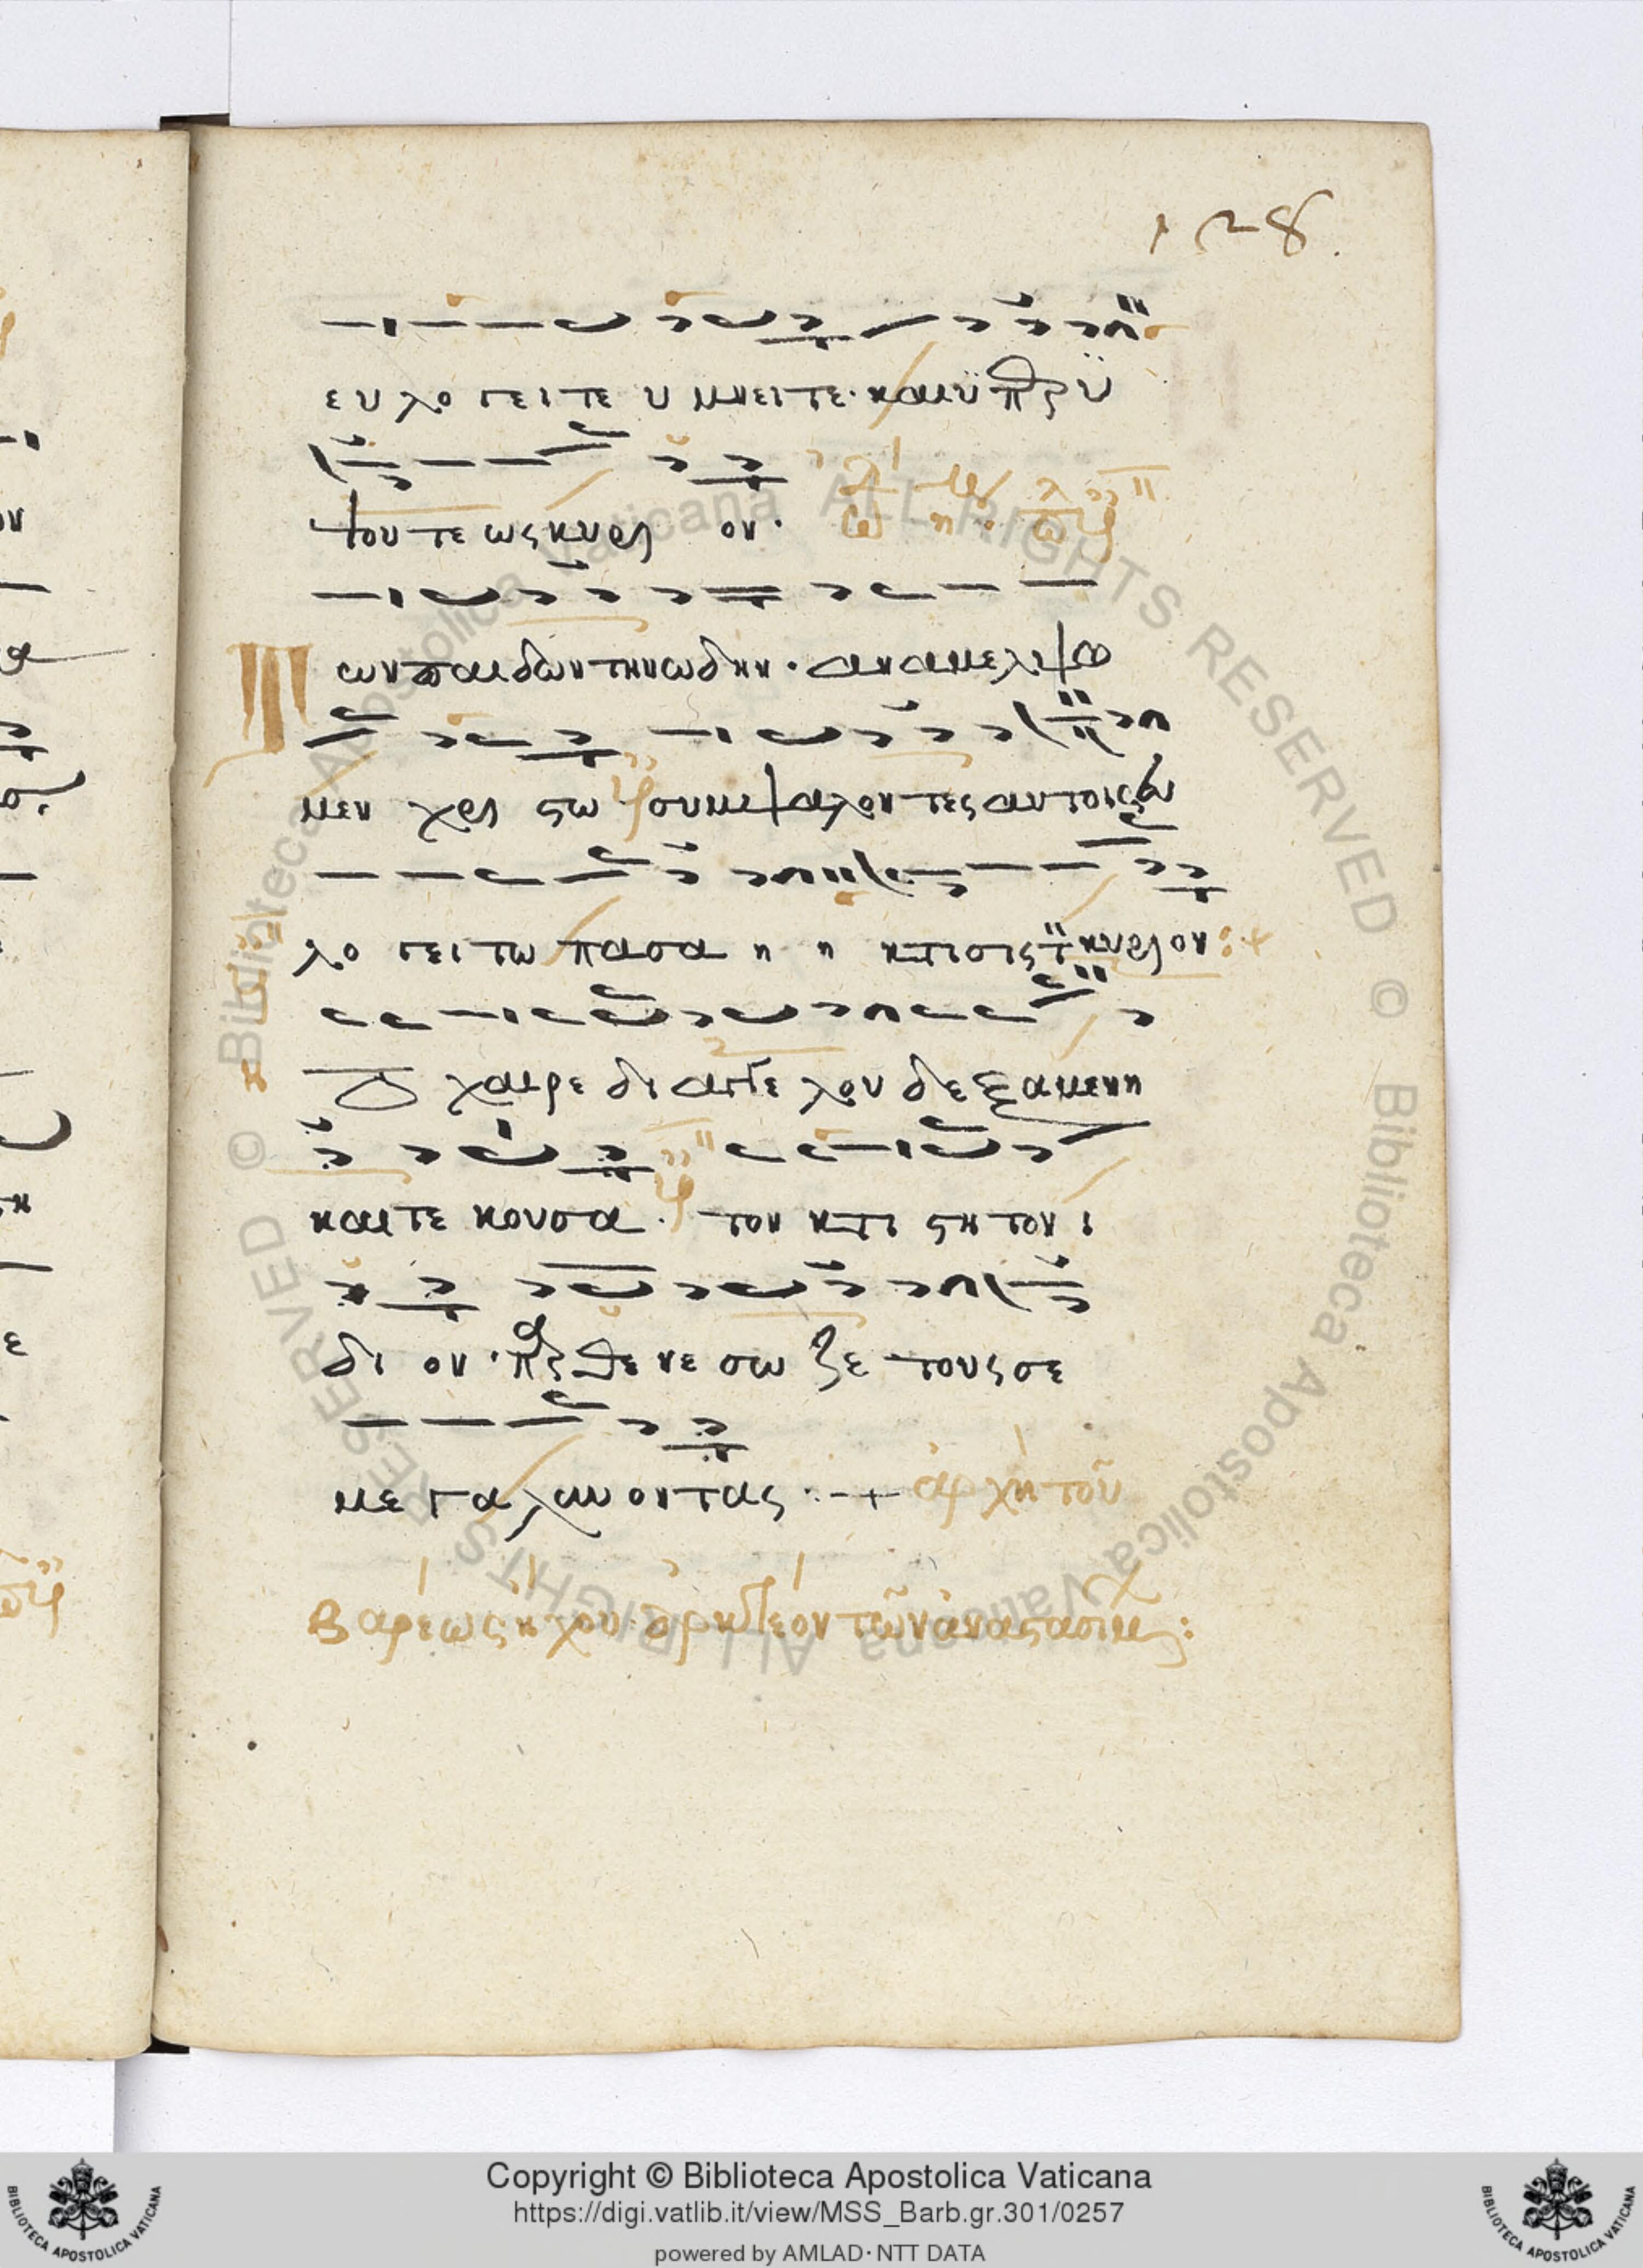 128.
ευ λο γει τε υ μνει τε · και ϋπερϋ
ψου τε ως κυρι ον · ωδη : 
Των παιδων την ωδην · αναμελψω
μεν χρι στω συμψαλοντες αυτοις ευ
λο γει τω πασα η η κτισις τ κυριον : +
χαιρε δι αγγε λου δε ξαμενη
και τε κουσα · τον κτι στη τον ι
δι ον · παρθενε σω ζε τους σε
με γα λυνοντας · : — + ἀρχὴ τοῦ
Βαρέως ἤχου · εἱρμολεον τῶν ἀναστασιμ :
Copyright © Biblioteca Apostolica Vaticana
https://digi.vatlib.it/view/MSS_Barb.gr.301/0257
powered by AMLAD·NTT DATA
BIBLIOTECA APOSTOLICA VATICANA
BIBLIOTECA APOSTOLICA VATICANA
© Biblioteca Apostolica Vaticana ALL RIGHTS RESERVED
© Biblioteca Apostolica Vaticana ALL RIGHTS RESERVED